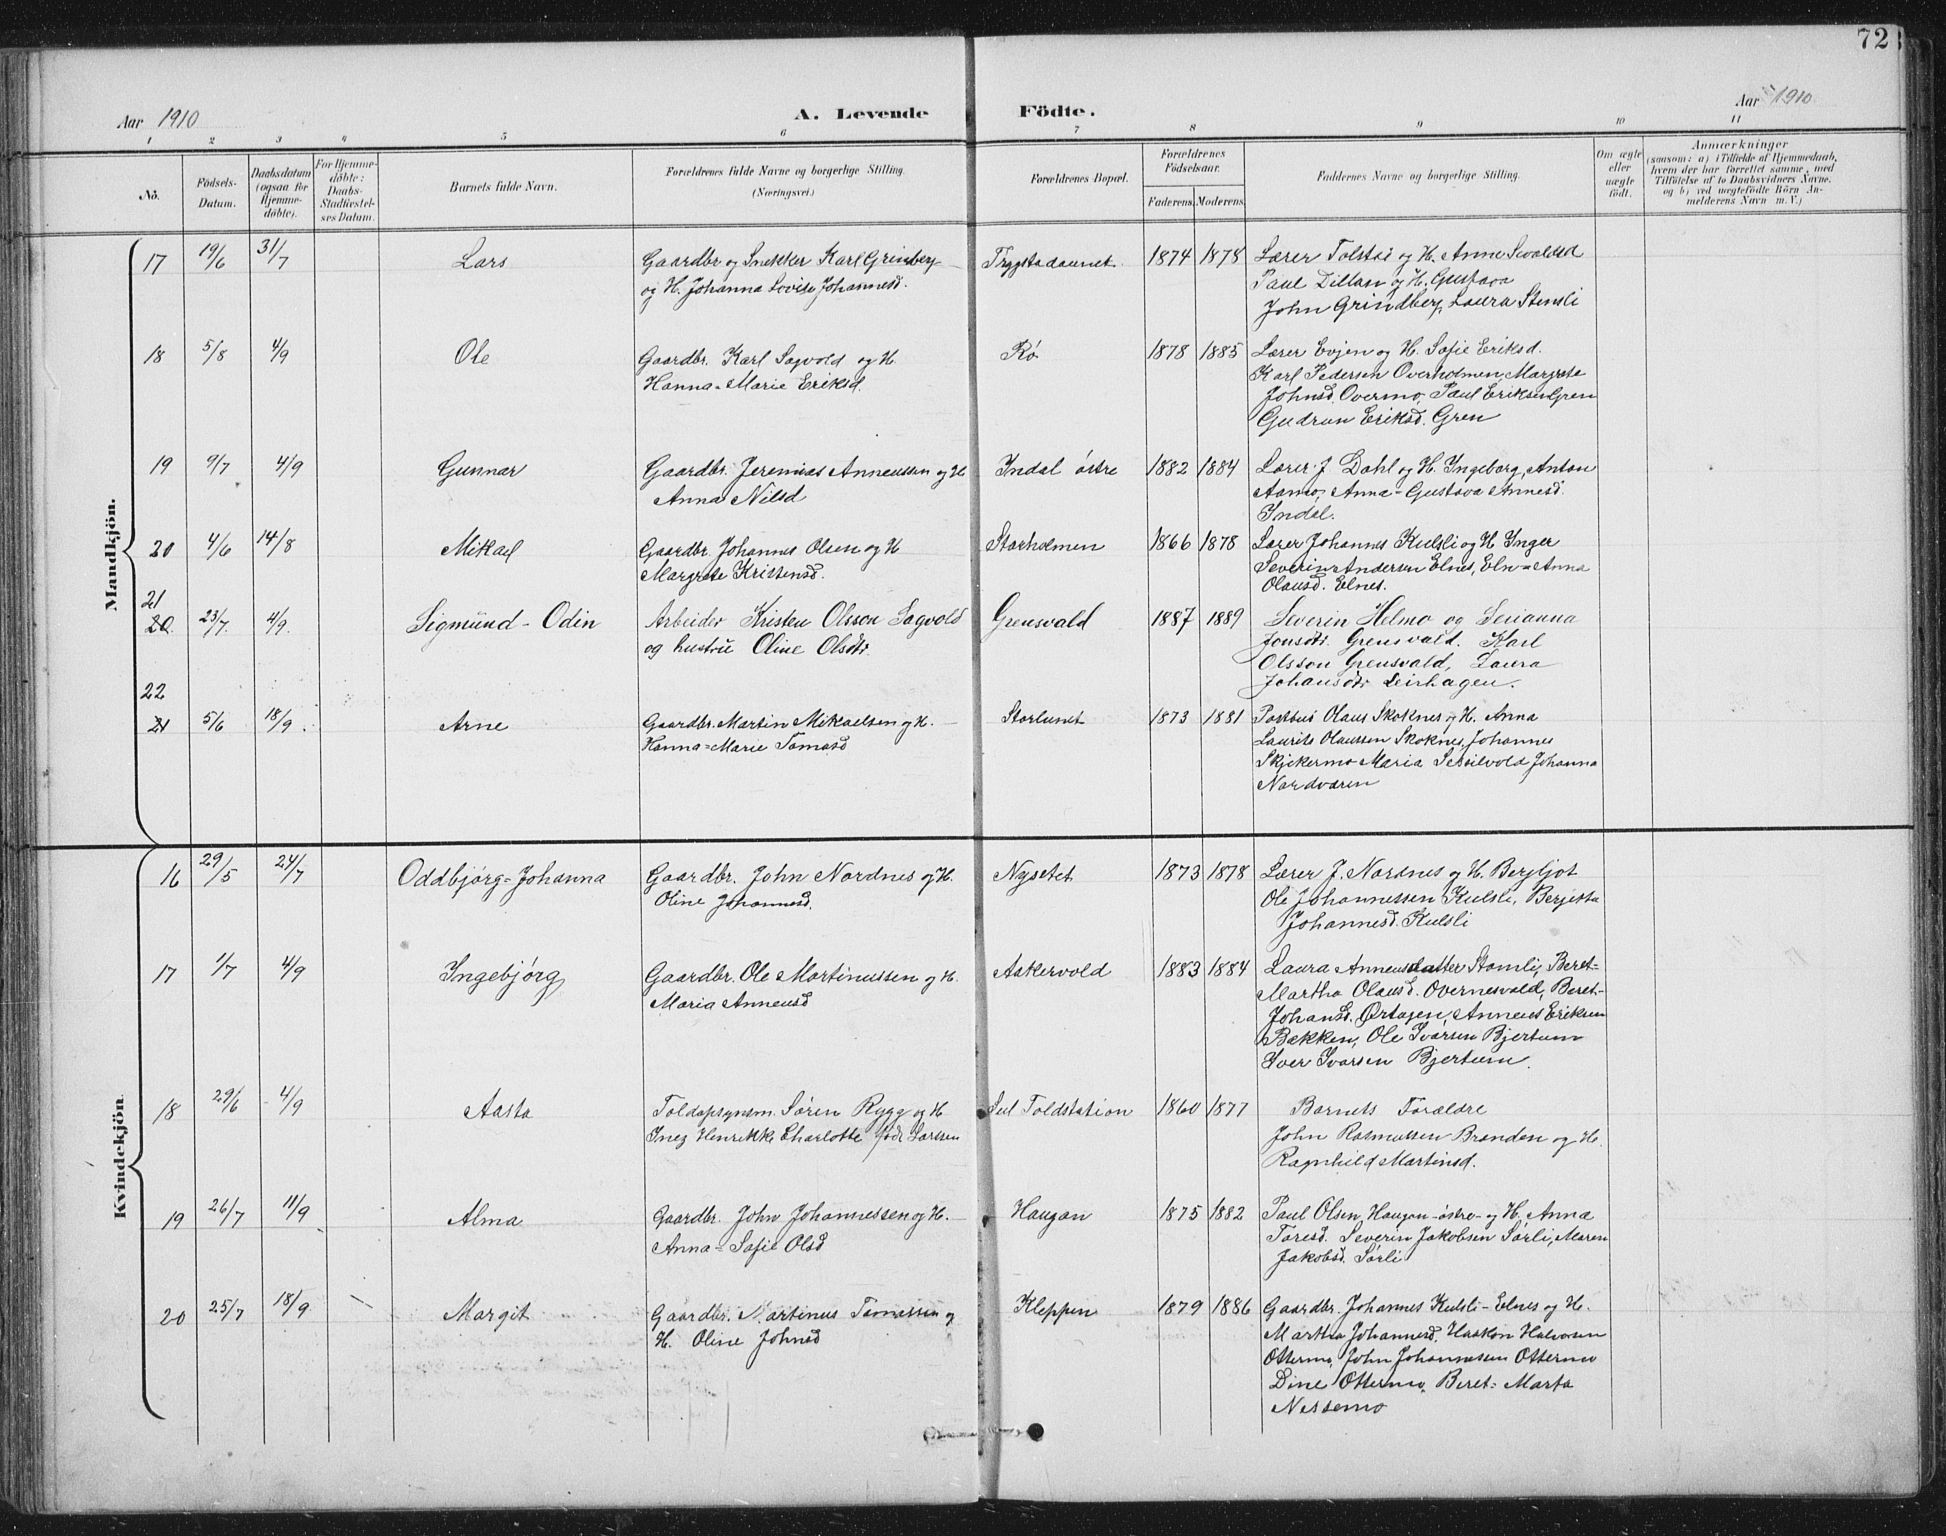 72
Aar 1910
A. Levende Födte.
Aar 1910
1 2 3 4 5 6 7 8 9 10 11
No.
Födsels-Datum.
Daabsdatum (ogsaa for Hjemme-döbte).
For Hjemme-döbte: Daabs-Stadfæstel-ses Datum.
Barnets fulde Navn.
Forældrenes fulde Navne og borgerlige Stilling.
(Næringsvei.)
Forældrenes Bopæl.
Forældrenes Födselsaar.
Faderens. Moderens.
Faddernes Navne og borgerlige Stilling.
Om ægte eller uægte födt.
Anmærkninger
(saasom: a) i Tilfælde af Hjemmedaab,
hvem der har forrettet samme, med
Tilföielse af to Daabsvidners Navne.
og b) ved uægtefödte Börn An-
melderens Navn m. V.)
Mandkjön.
17 19/6 31/7 Lars Gaardbr og Snekker Karl Grindberg Trygstadaunet 1874 1878 Lærer Tolstad og H. Anne Sevaldsd
og H. Johanna Lovise Johannesd. Paul Dillan og H. Gustava
John Grindberg, Laura Stensli
18 5/8 4/9 Ole Gaardbr. Karl Sagvold og H Rø 1878 1885 Lærer Evjen og H. Sofie Eriksd.
Hanna-Marie Eriksd Karl Pedersen Overholmen, Margrete
Johnsd. Overmo, Paul Eriksen Gren
Gudrun Eriksd. Gren
19 9/7 4/9 Gunnar Gaardbr. Jeremias Anneussen og H Indal østre 1882 1884 Lærer J. Dahl og H. Ingeborg, Anton
Anna Nilsd Aamo, Anna-Gustava Annesd.
Indal.
20 4/6 14/8 Mikael Gaardbr. Johannes Olsen og H Storholmen 1866 1878 Lærer Johannes Kulsli og H Inger
Margrete Kristensd. Severin Andersen Elnes, Eln=Anna
Olausd. Elnes.
21
20. 23/7. 4/9. Sigmünd-Odin Arbeider Kristen Olsson Sagvold Grensvald 1887 1889 Severin Helmo og Serianna
og hustrü Oline Olsdtr. Jonsdtr. Grensvald. Karl
Olsson Grensvald, Laura
Johansdtr. Leirhagen.
22
21 5/6 18/9. Arne Gaardbr. Martin Mikaelsen og H. Storlunet 1873 1881 Postbud Olaus Skoknes og H. Anna
Hanna=Marie Tomasd Laurits Olaussen Skoknes, Johannes
Skjekermo Maria Johanna
Nordvaren
Kvindekjön.
16 29/5 24/7 Oddbjørg=Johanna Gaardbr. John Nordnes og H. Nysetet 1873 1878 Lærer J. Nordnes og H. Bergljot
Oline Johannesd. Ole Johannessen Kulsli, Berjetta
Johannesd. Kulsli
17 1/7 4/9 Ingebjørg Gaardbr. Ole Martinussen og H. Aakervold 1883 1884 Laura Anneusdatter Stamli, Beret=
Maria Anneusd Martha Olausd. Overnesvald, Beret-
Johansd. Ørtugen, Anneus Eriksen
Bakken, Ole Ivarsen Bjertum
Iver Ivarsen Bjertum.
18 29/6 4/9 Aasta Toldopsynsm. Søren Rygg og H Sul Toldstation 1860 1877 Barnets Forældre
Inez Henrikke Charlotte født Larssen John Rasmussen Branden og H.
Ragnhild Martinsd.
19 26/7 11/9 Alma Gaardbr. John Johannessen og H. Haugan 1875 1882 Paul Olsen Haugan -østre- og H. Anna
Anna-Sofie Olsd Toresd. Severin Jakobsen Sørli, Maren
Jakobsd. Sørli
20 25/7 18/9 Margit Gaardbr. Martinus Tomassen og Kleppen 1879 1886 Gaardbr. Johannes Kulsli-Elnes og H.
H. Oline Johnsd Martha Johannesd. Haakon Halvorsen
Ottermo, John Johannessen Ottermo
Dine Ottermo, Beret=Marta
Nessemo